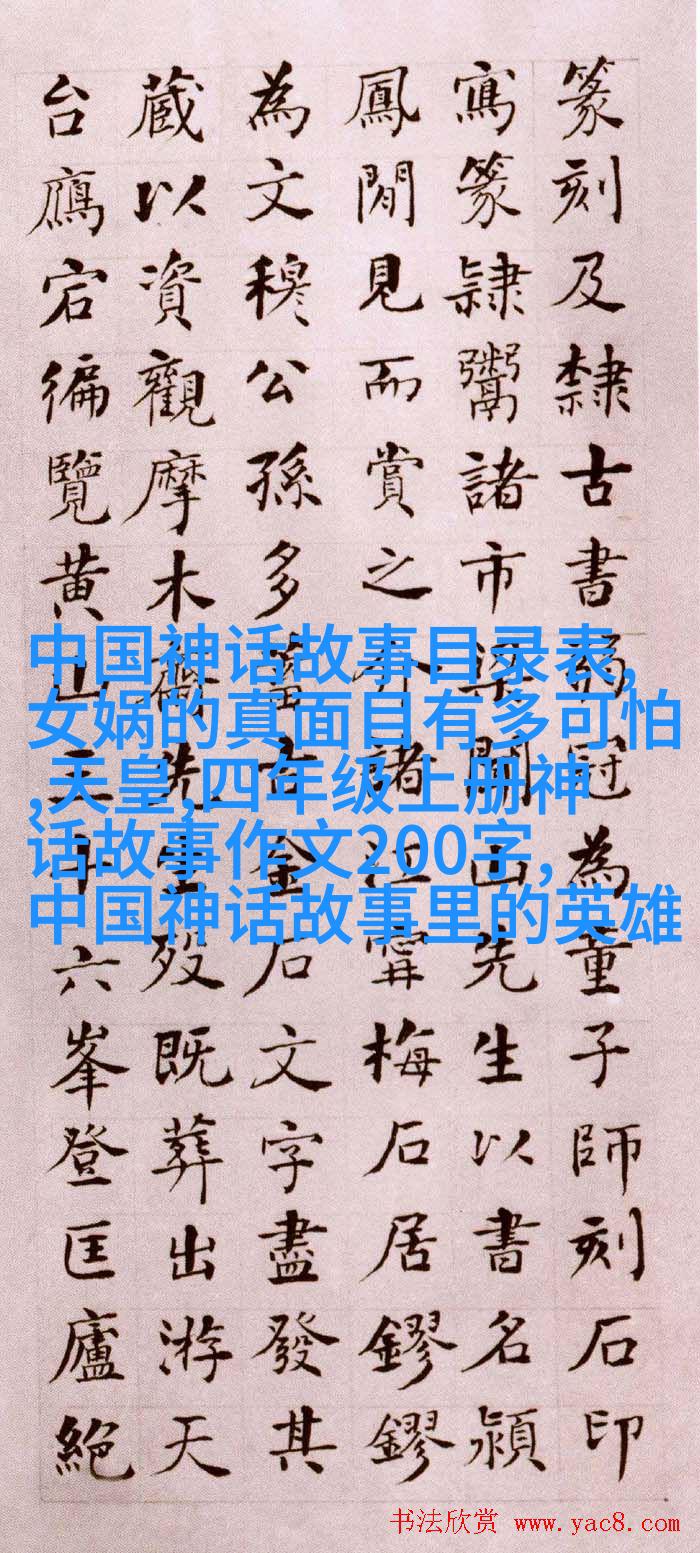 篆刻及隸古書弱冠為童子師刻石印
寫篆隸鬻諸市梁聞山先生以書名潁
鳳閒見而賞之介諸江寧梅石居鏐鏐
為文穆公孫多蓄古金石文字盡發其
蔵以資觀摩木齋先生歿既葬出游天
台鴈宕徧覽黃山三十六峯登匡廬絕
中国神话故事目录表,
女娲的真面目有多可怕
,天皇,四年级上册神
话故事作文200字,
中国神话故事里的英雄
书法欣赏 www.yac8.com